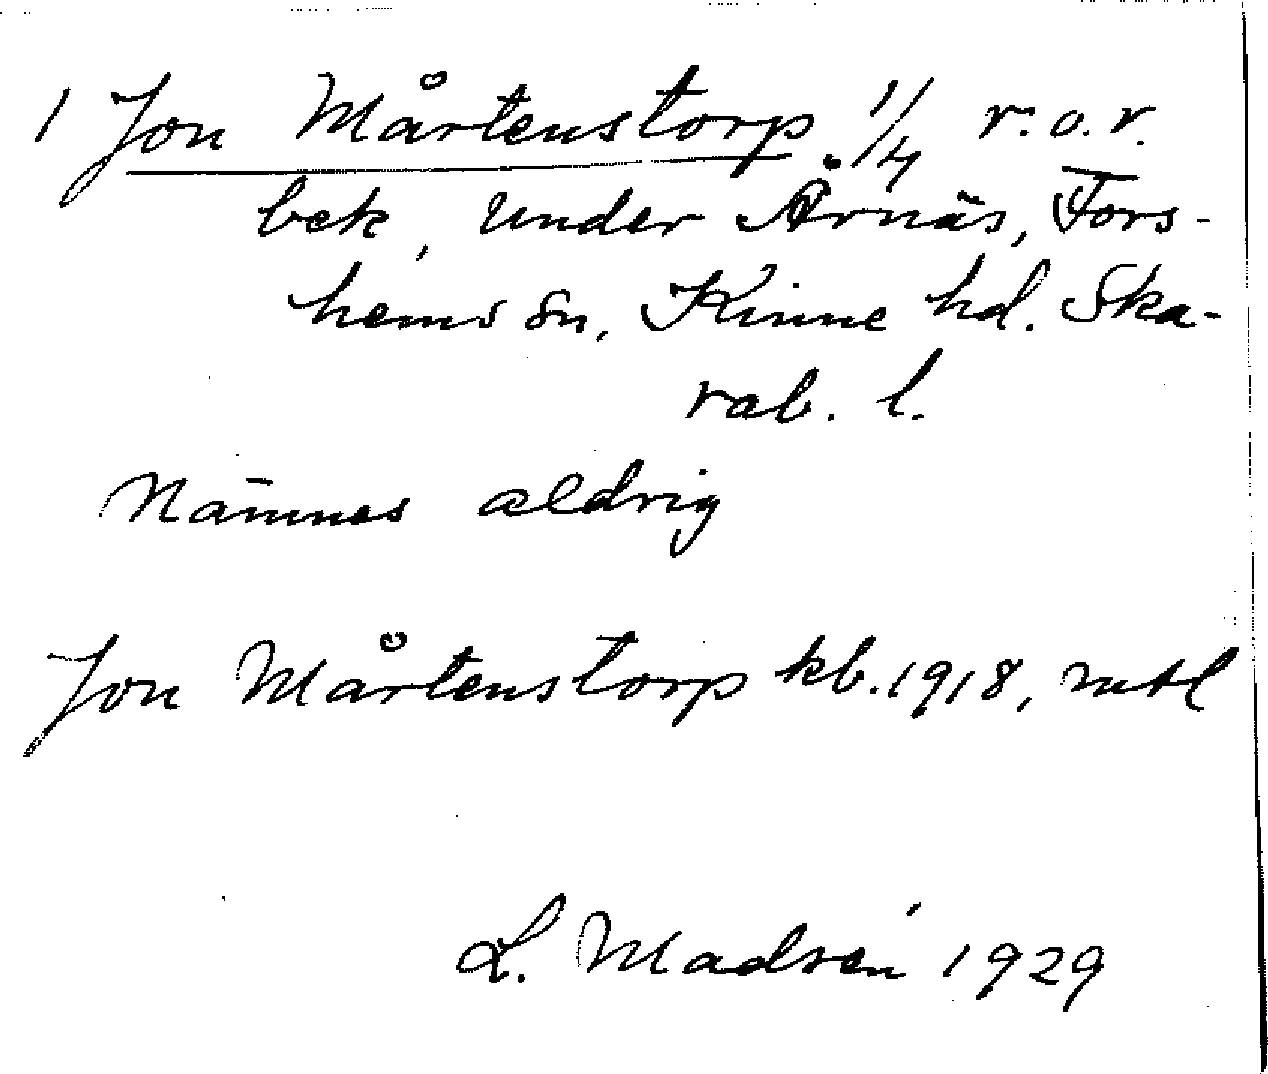 1 Jon Mårtenstorp. 1/4 r. o. r.
bek, under Årnäs, Fors-
hems sn, Kinne hd. Ska-
rab. l.
Nämnes aldrig
Jon Mårtenstorp kb. 1918, mtl
L. Madsén 1929